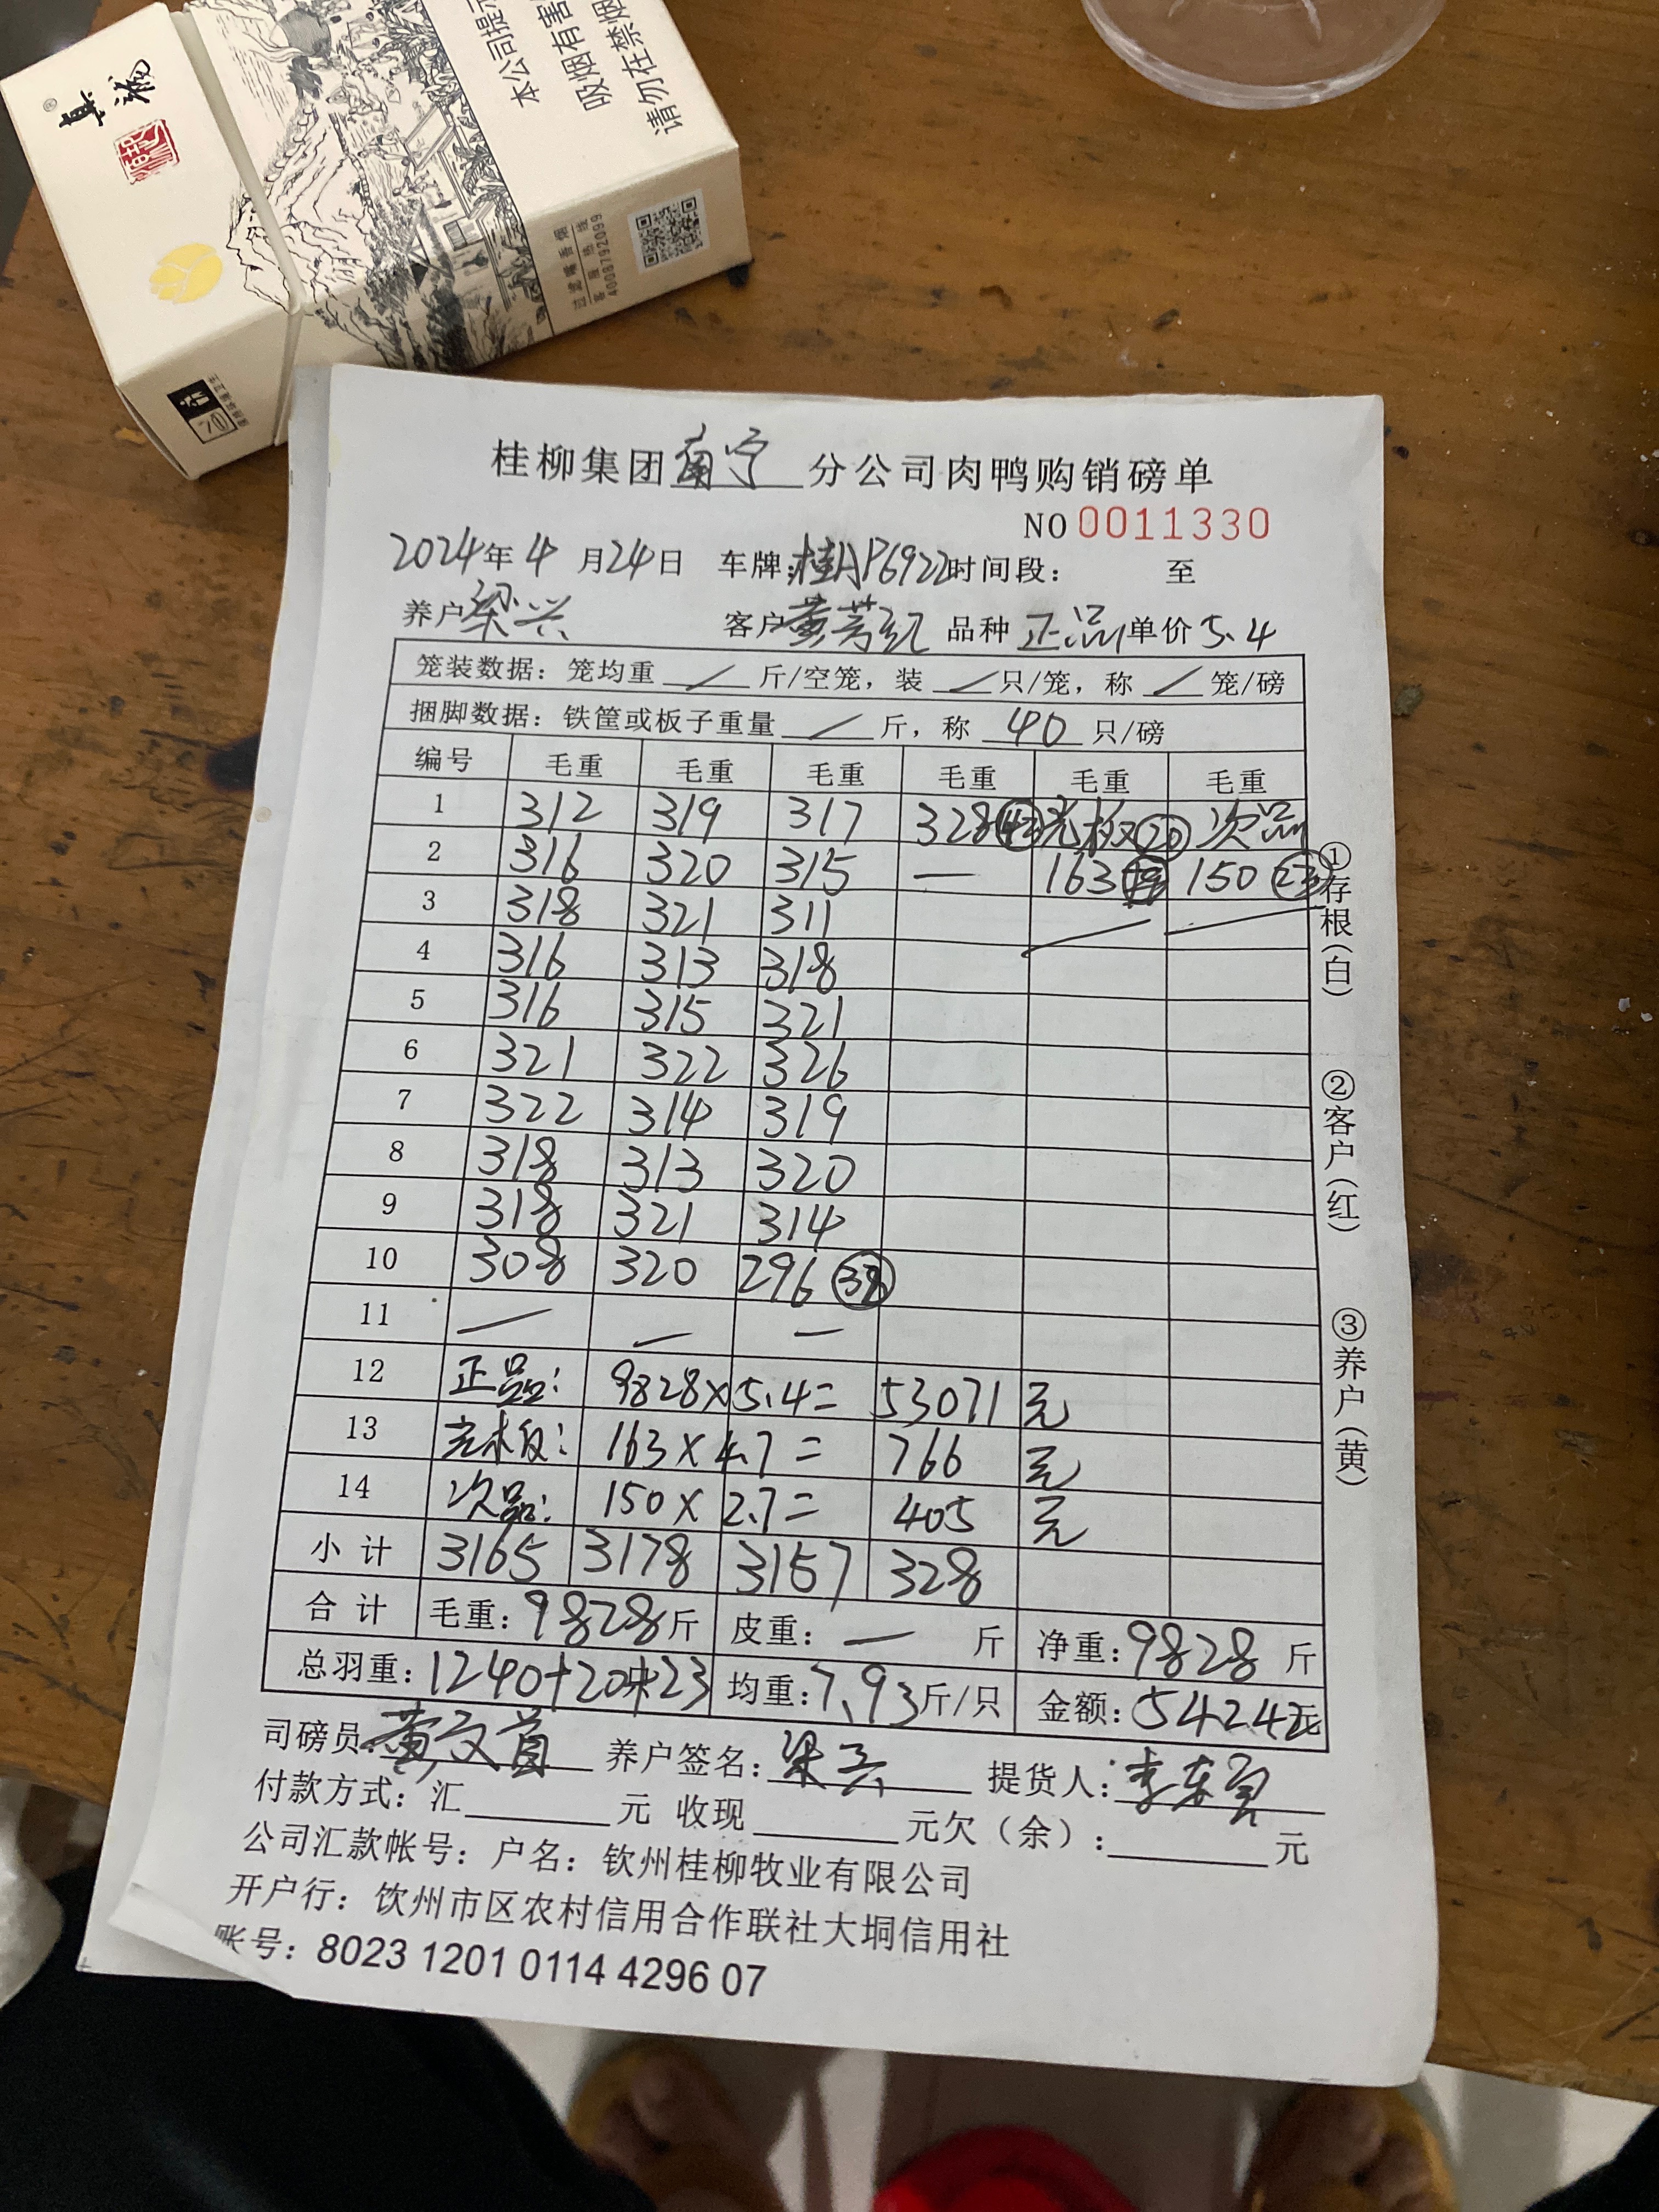 真龙
本公司提示
吸烟有害
请勿在禁烟
过滤嘴香烟
客服热线
4008792099
桂柳集团南宁分公司肉鸭购销磅单
NO 0011330
2024年4月24日 车牌:桂AP6922时间段: 至
养户梁兴 客户 品种 正品 单价 5.4
笼装数据: 笼均重 / 斤/空笼, 装 / 只/笼, 称 / 笼/磅
捆脚数据: 铁筐或板子重量 / 斤, 称 40 只/磅
编号 毛重 毛重 毛重 毛重 毛重 毛重
1 312 319 317 328 42 光板 20 次品
2 316 320 315 — 163 150 23
3 318 321 311
4 316 313 318
5 316 315 321
6 321 322 326
7 322 314 319
8 318 313 320
9 318 321 314
10 308 320 296 38
11 — — —
12 正品: 9828×5.4= 53071 元
13 光板: 163×4.7= 766 元
14 次品: 150×2.7= 405 元
小计 3165 3178 3157 328
合计 毛重: 9828斤 皮重: — 斤 净重: 9828 斤
总羽重: 1240+20+23 均重: 7.93斤/只 金额: 54242元
司磅员: 黄文首 养户签名: 梁兴 提货人: 李东
付款方式: 汇 元 收现 元欠(余): 元
公司汇款帐号: 户名: 钦州桂柳牧业有限公司
开户行: 钦州市区农村信用合作联社大垌信用社
账号: 8023 1201 0114 4296 07
①存根(白)
②客户(红)
③养户(黄)